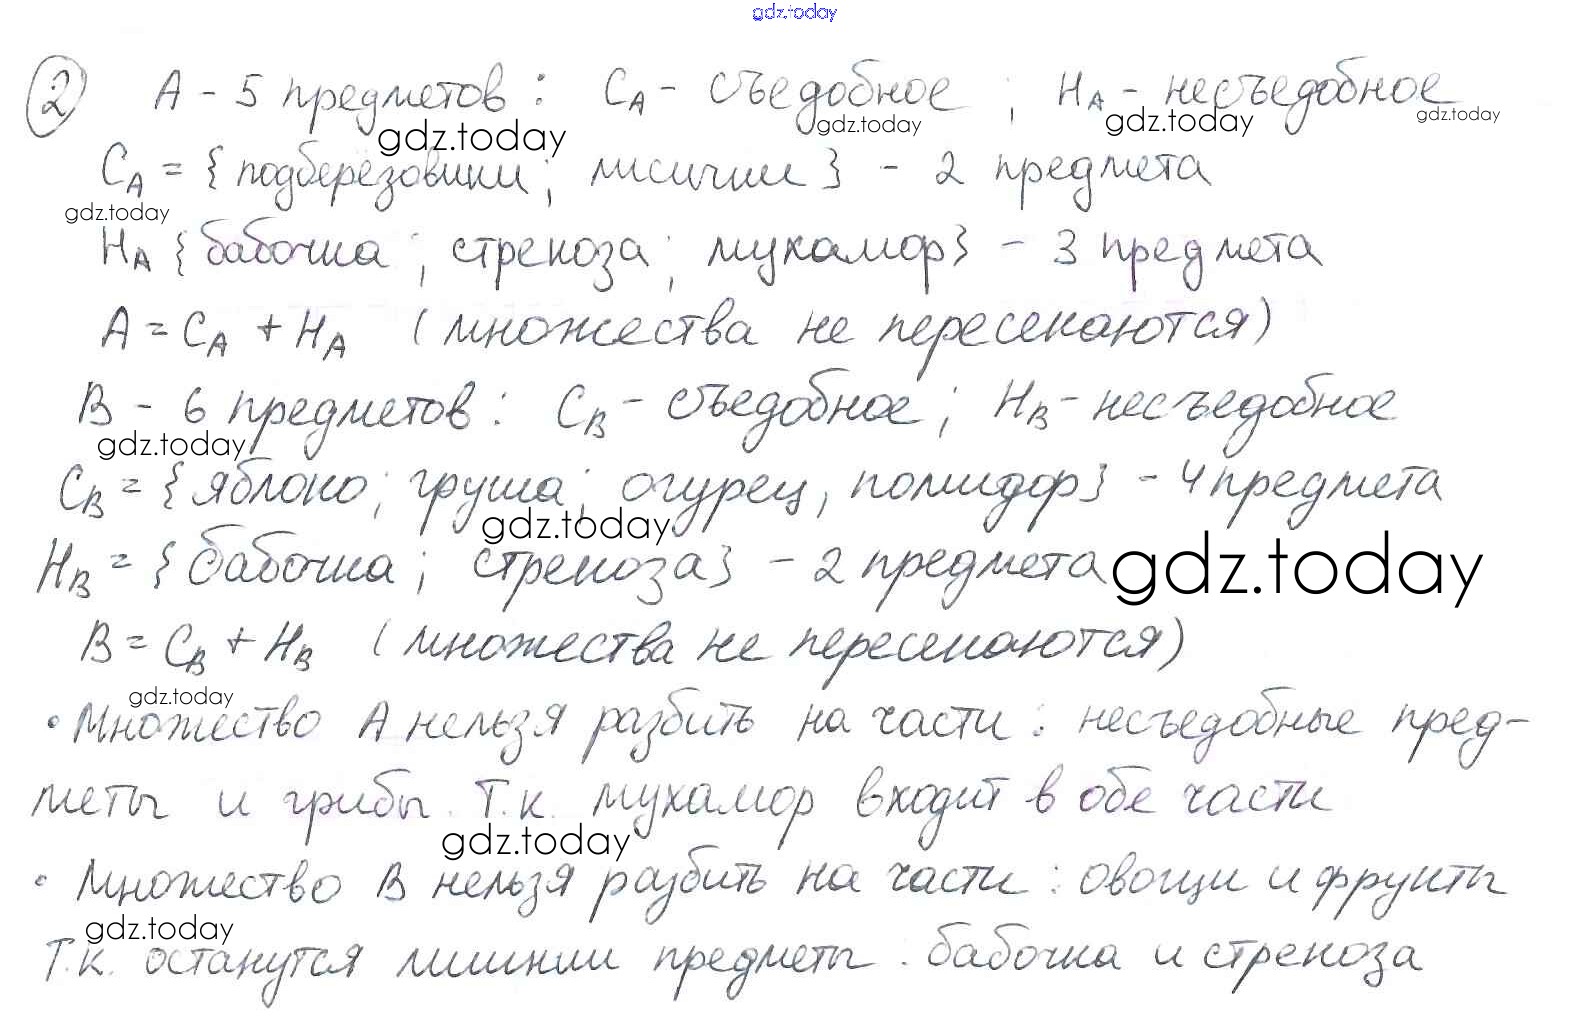 gdz.today
2 А - 5 предметов : СА - съедобное ; НА - несъедобное
gdz.today gdz.today gdz.today gdz.today
СА = { подберёзовики ; лисички } - 2 предмета
gdz.today
НА { бабочка ; стрекоза ; мухамор } - 3 предмета
А = СА + НА ( множества не пересекаются )
В - 6 предметов : СВ - съедобное ; НВ - несъедобное
gdz.today
СВ = { яблоко ; груша ; огурец , помидор } - 4 предмета
gdz.today
НВ = { бабочка ; стрекоза } - 2 предмета gdz.today
В = СВ + НВ ( множества не пересекаются )
gdz.today
• Множество А нельзя разбить на части : несъедобные пред-
меты и грибы. Т.к. мухамор входит в обе части
gdz.today
• Множество В нельзя разбить на части : овощи и фрукты
gdz.today
Т.к. останутся лишнии предметы : бабочка и стрекоза